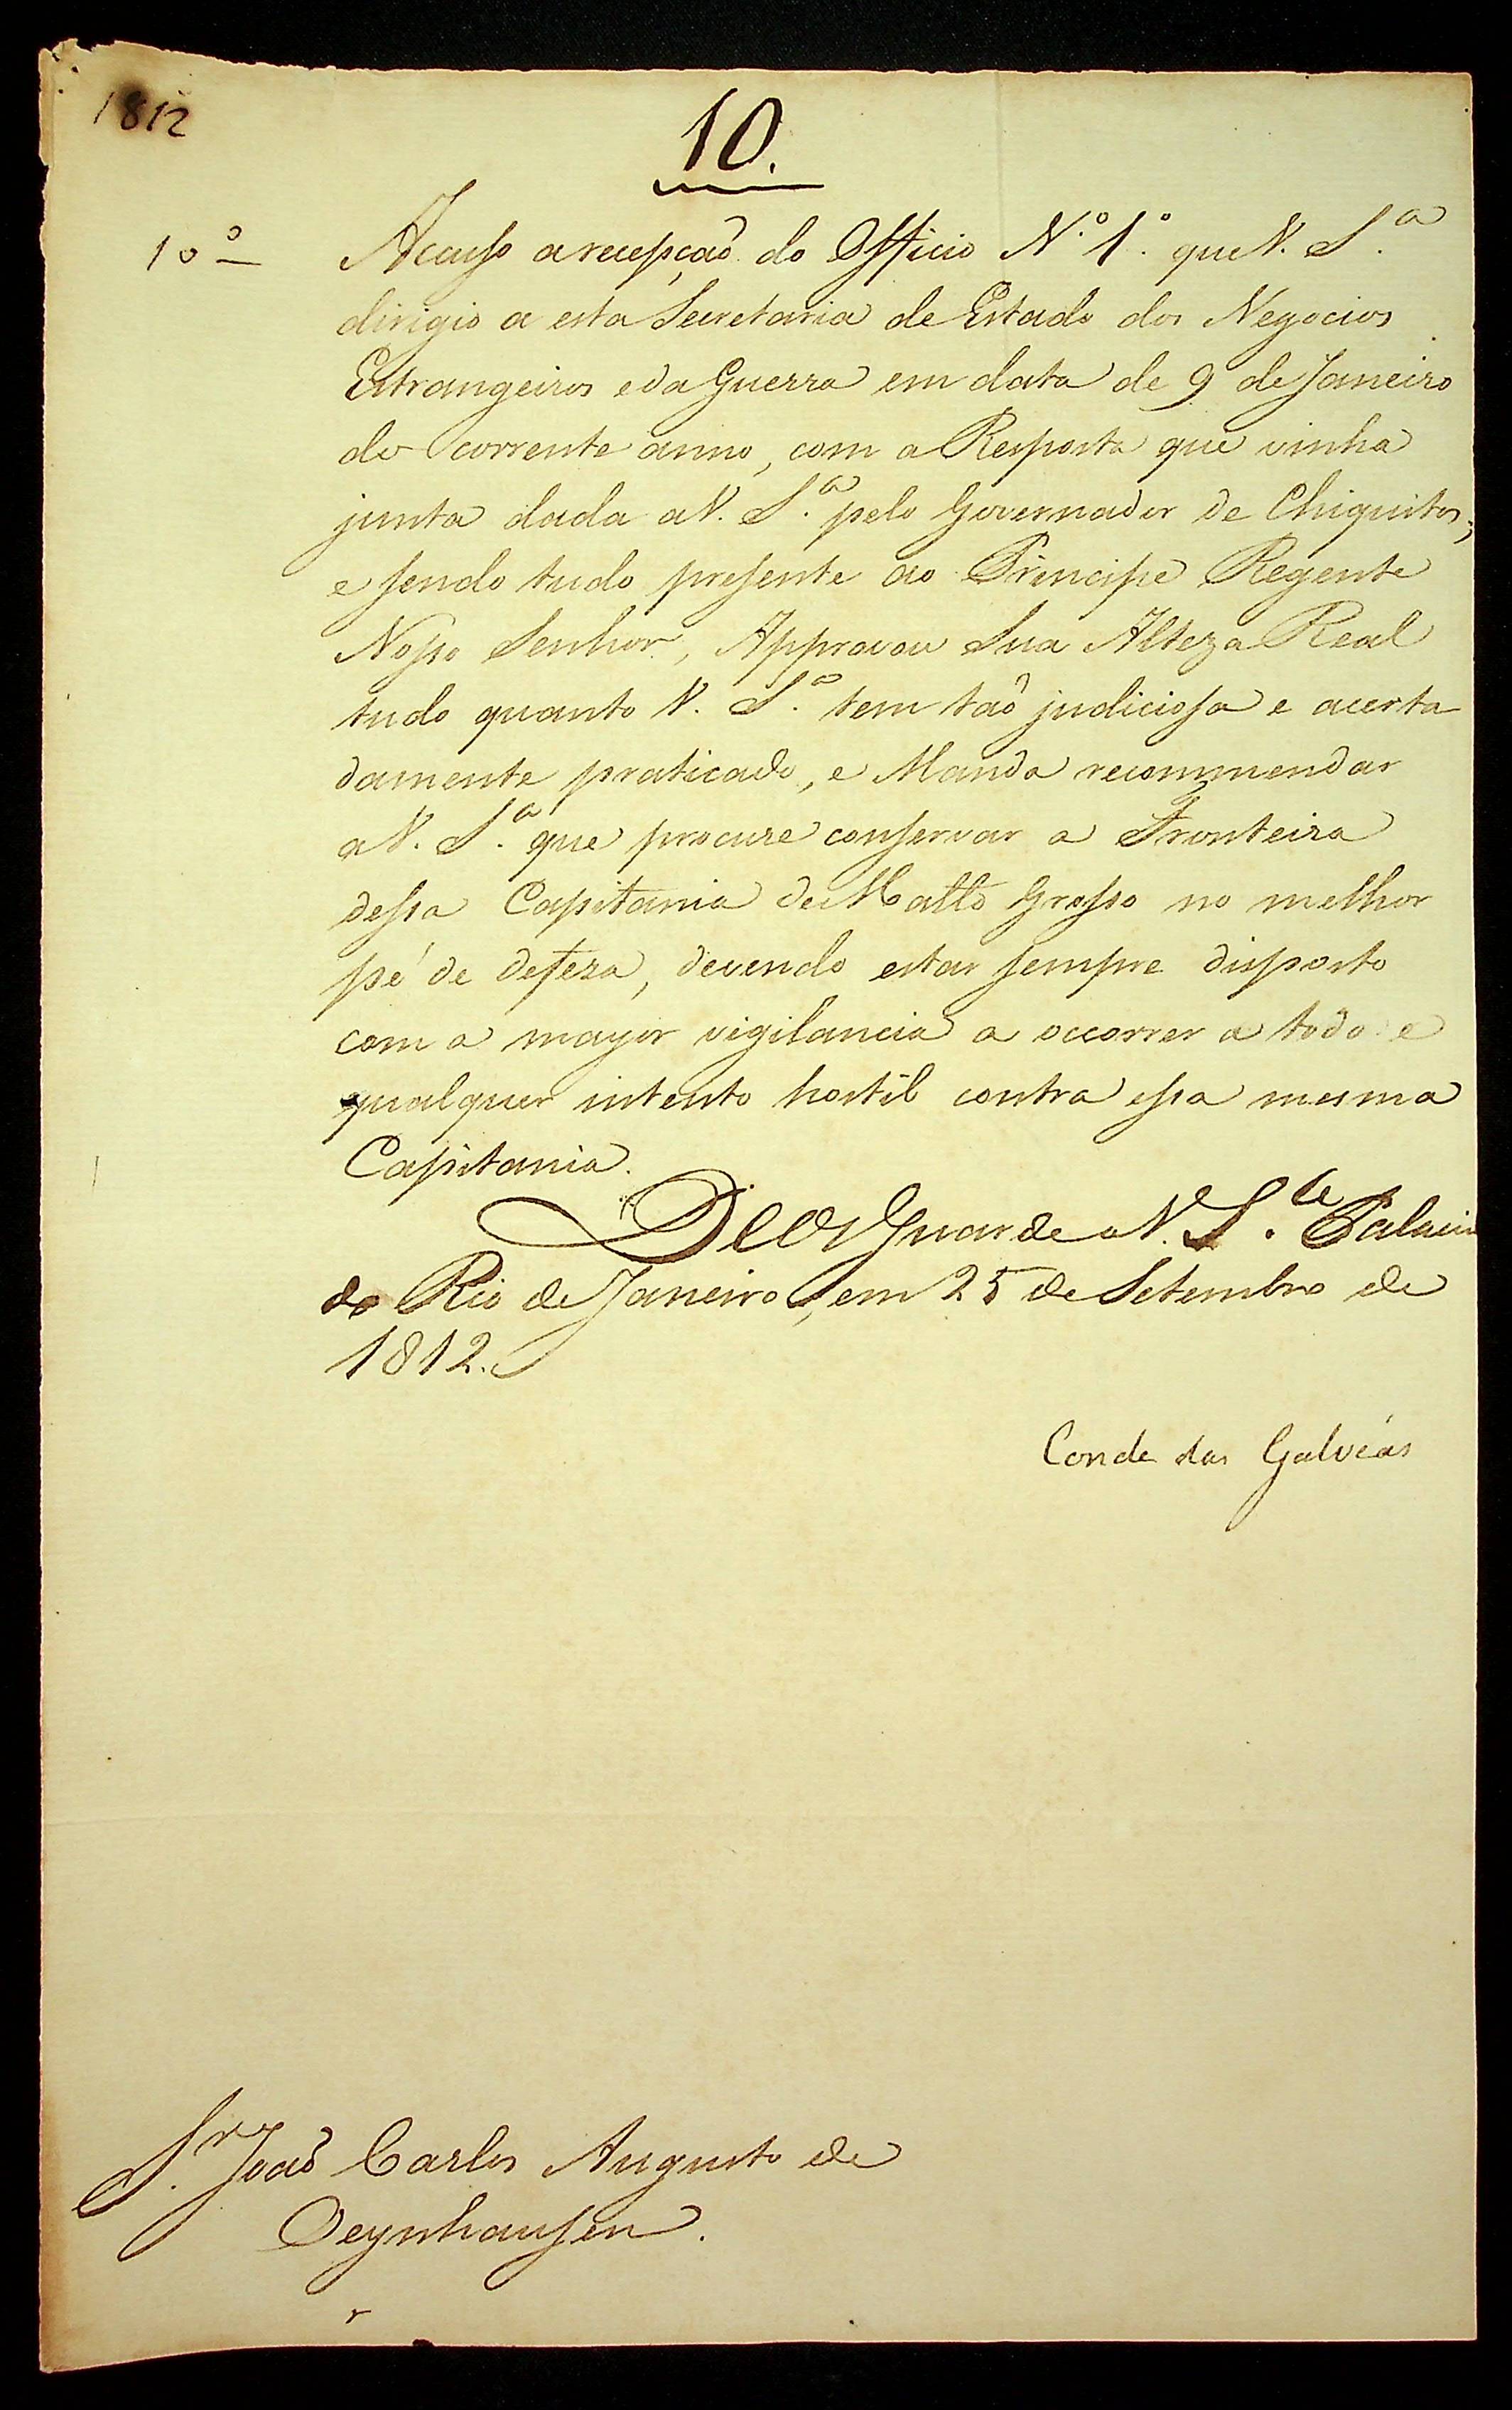 1812
10.
10º
Accuso a recepçaõ do Officio N.º 1.º que V. S.ª
dirigio a esta Secretaria de Estado dos Negocios
Estrangeiros e da Guerra em data de 9 de Janeiro
do corrente anno, com a Resposta que vinha
junta dada a V. S.ª pelo Governador de Chiquitos;
e sendo tudo presente ao Principe Regente
Nosso Senhor, Approvou Sua Alteza Real
tudo quanto V. S.ª tem taõ judiciosa e acerta
damente praticado, e Manda recommendar
a V. S.ª que procure conservar a Fronteira
dessa Capitania de Matto Grosso no melhor
pé de defeza, devendo estar sempre disposto
com a mayor vigilancia a occorrer a todo e
qualquer intento hostil contra essa mesma
Capitania.
Deos Guarde a V. S.ª Palacio
do Rio de Janeiro, em 25 de Setembro de
1812.
Conde das Galvêas
S.r Joaõ Carlos Augusto de
Oeynhausen.